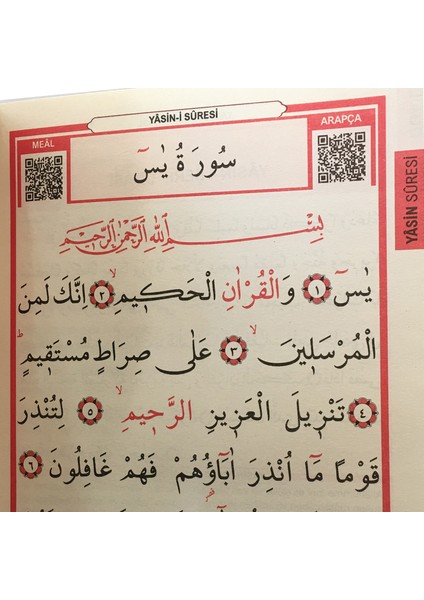 YÂSİN-İ SÛRESİ
MEÂL
ARAPÇA
سُورَةُ يٰسٓ
بِسْمِ اللّٰهِ الرَّحْمٰنِ الرَّحِيمِ
يٰسٓ ﴿١﴾ وَالْقُرْاٰنِ الْحَكِيمِۙ ﴿٢﴾ اِنَّكَ لَمِنَ
الْمُرْسَلِينَۙ ﴿٣﴾ عَلٰى صِرَاطٍ مُسْتَقِيمٍۜ
﴿٤﴾ تَنْزِيلَ الْعَزِيزِ الرَّحِيمِۙ ﴿٥﴾ لِتُنْذِرَ
قَوْمًا مَٓا اُنْذِرَ اٰبَٓاؤُهُمْ فَهُمْ غَافِلُونَ ﴿٦﴾
YÂSİN SÛRESİ